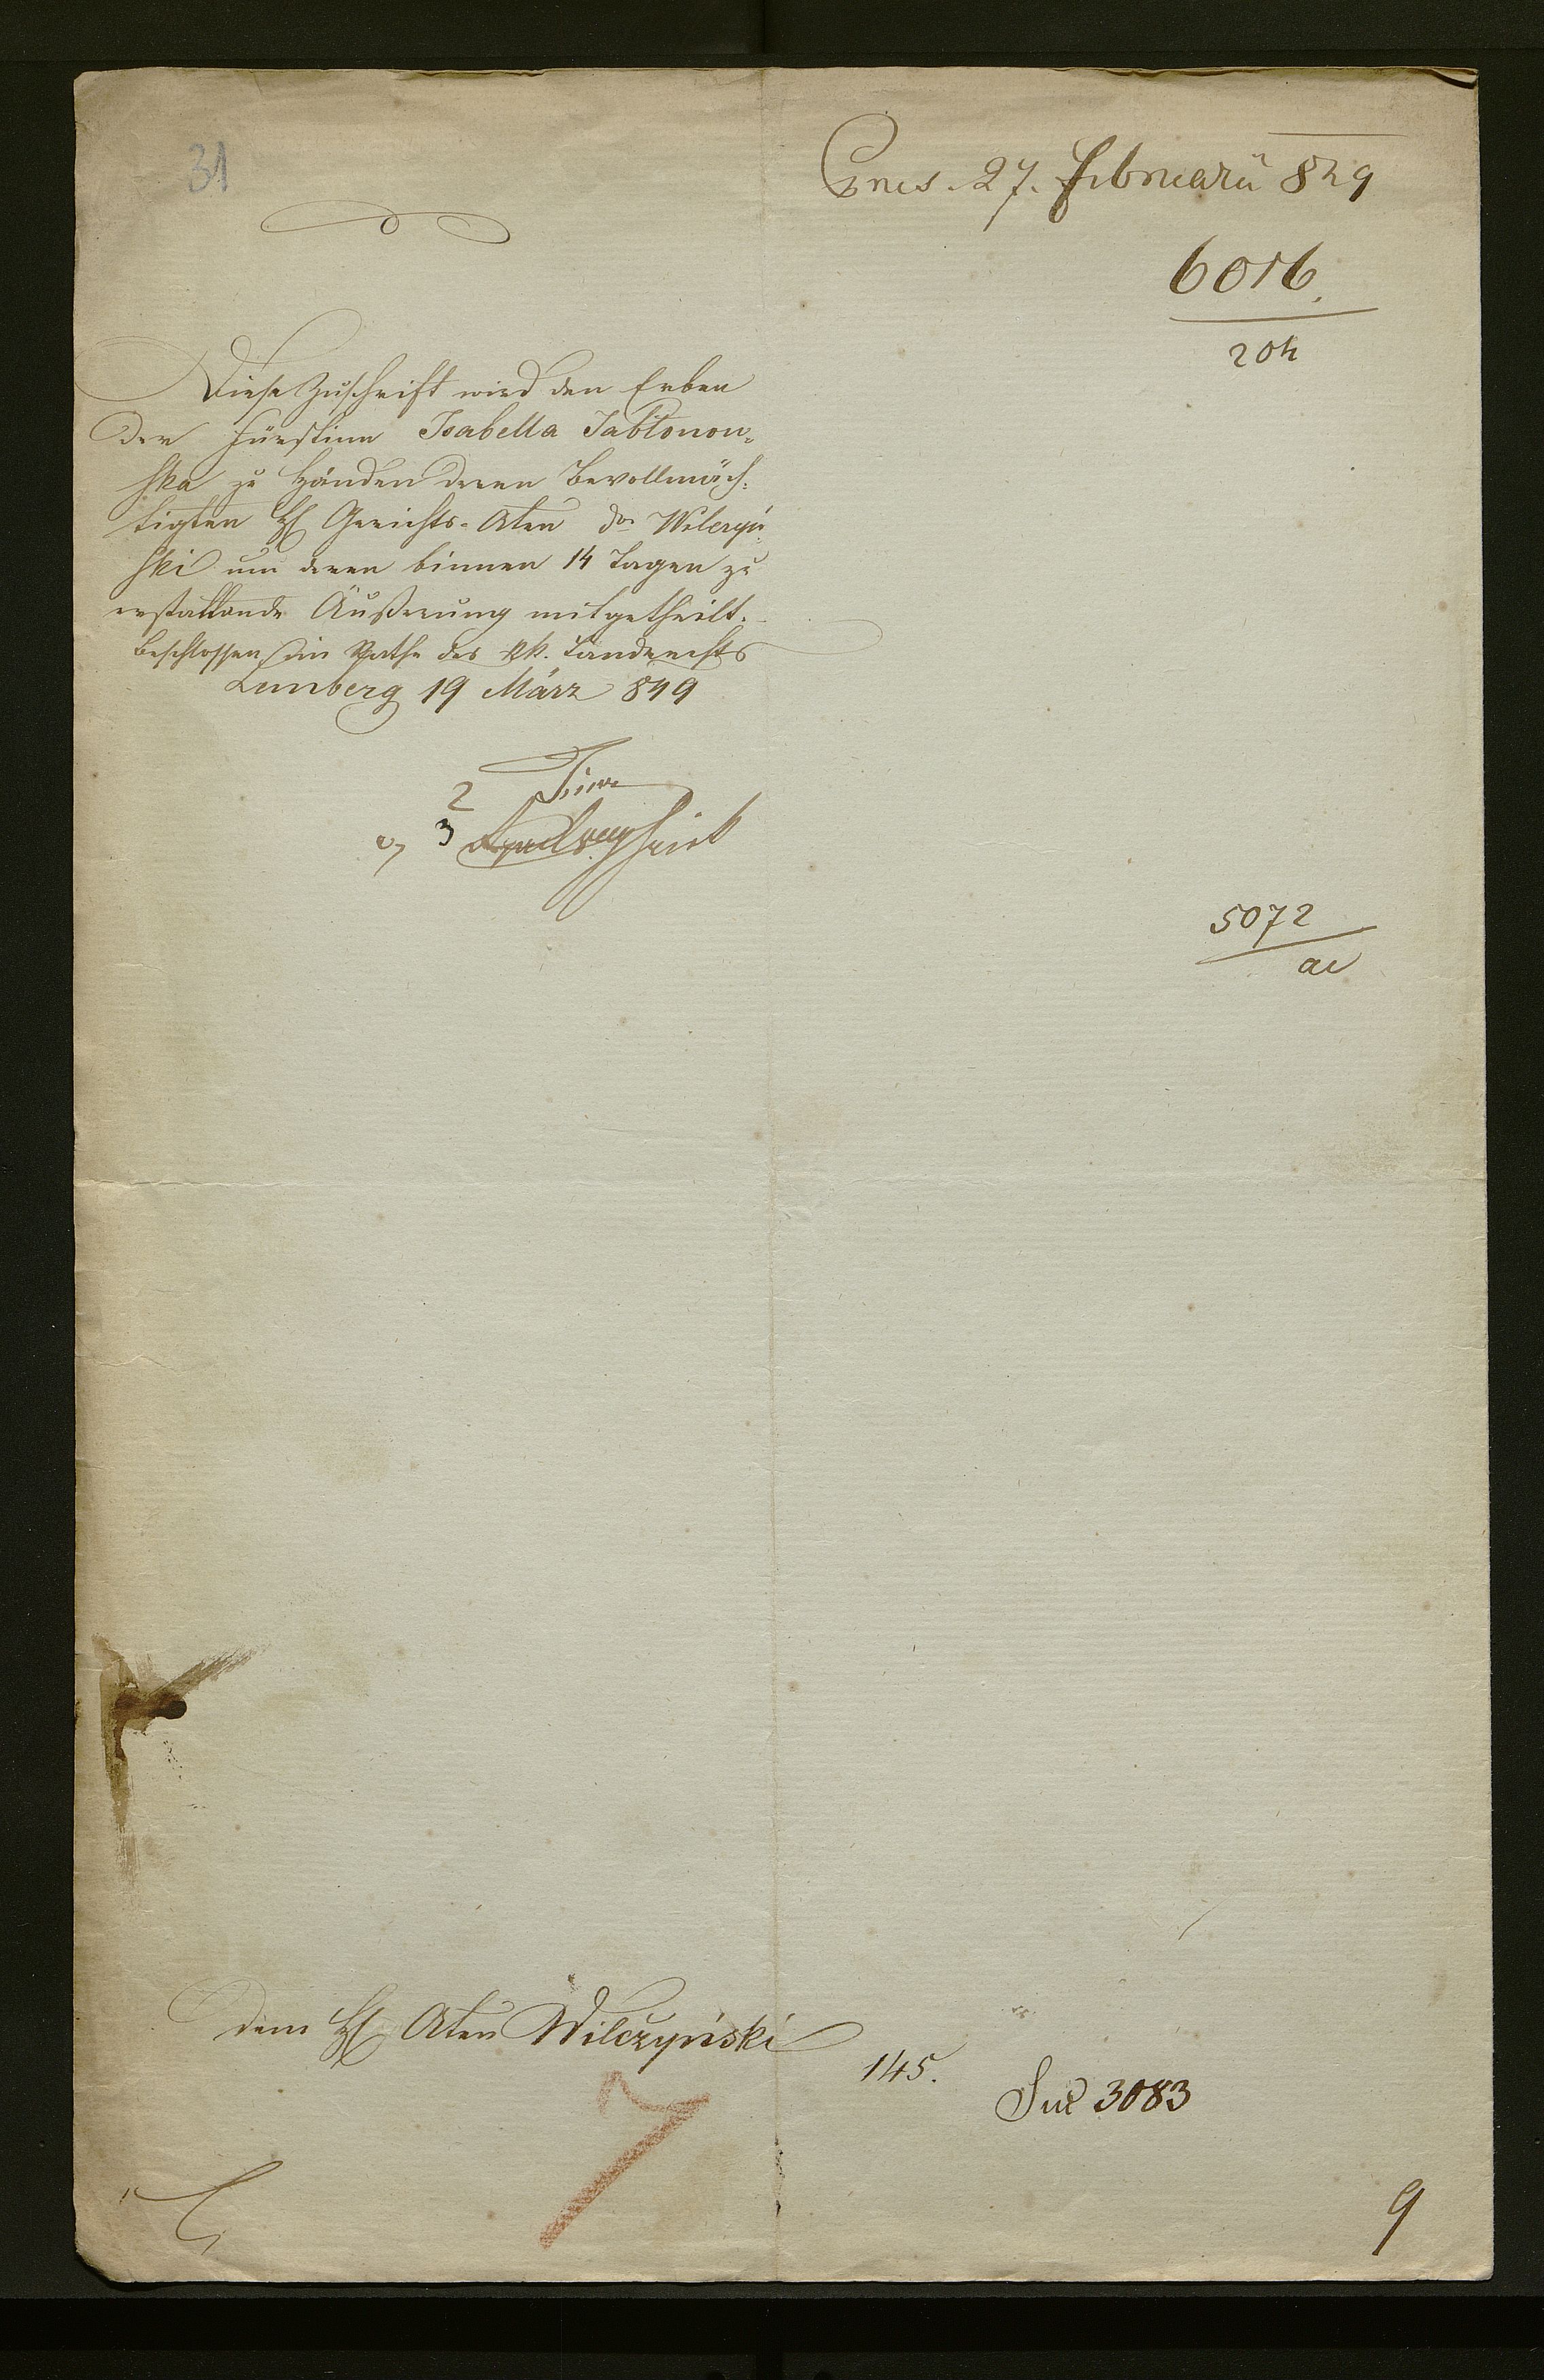 31
Pres. 27. Februarii 849
6016.
204
Diese Zuschrift wird den Erben
der Fürstinn Isabella Jabłonow=
ska zu Händen deren Bevollmäch=
tigten H Gerichts-Aten Dor Wilczyń
ski um deren binnen 14 Tagen zu
erstattende Äußerung mitgetheilt.
Beschlossen im Rathe des kk. Landrechts
Lemberg 19 März 849
2
3
5072
ac
dem H Aten Wilczyński
145.
3083
7
9